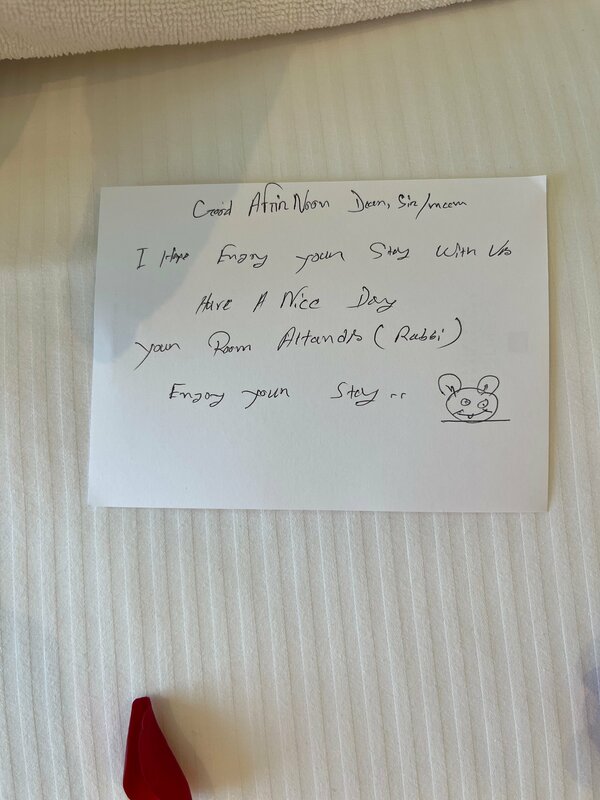 Good AfrinNoon Dear, Sir/maem
I Hope Enjoy your Stay With Us
Have A Nice Day
your Room Altands (Rabbi)
Enjoy your Stay..